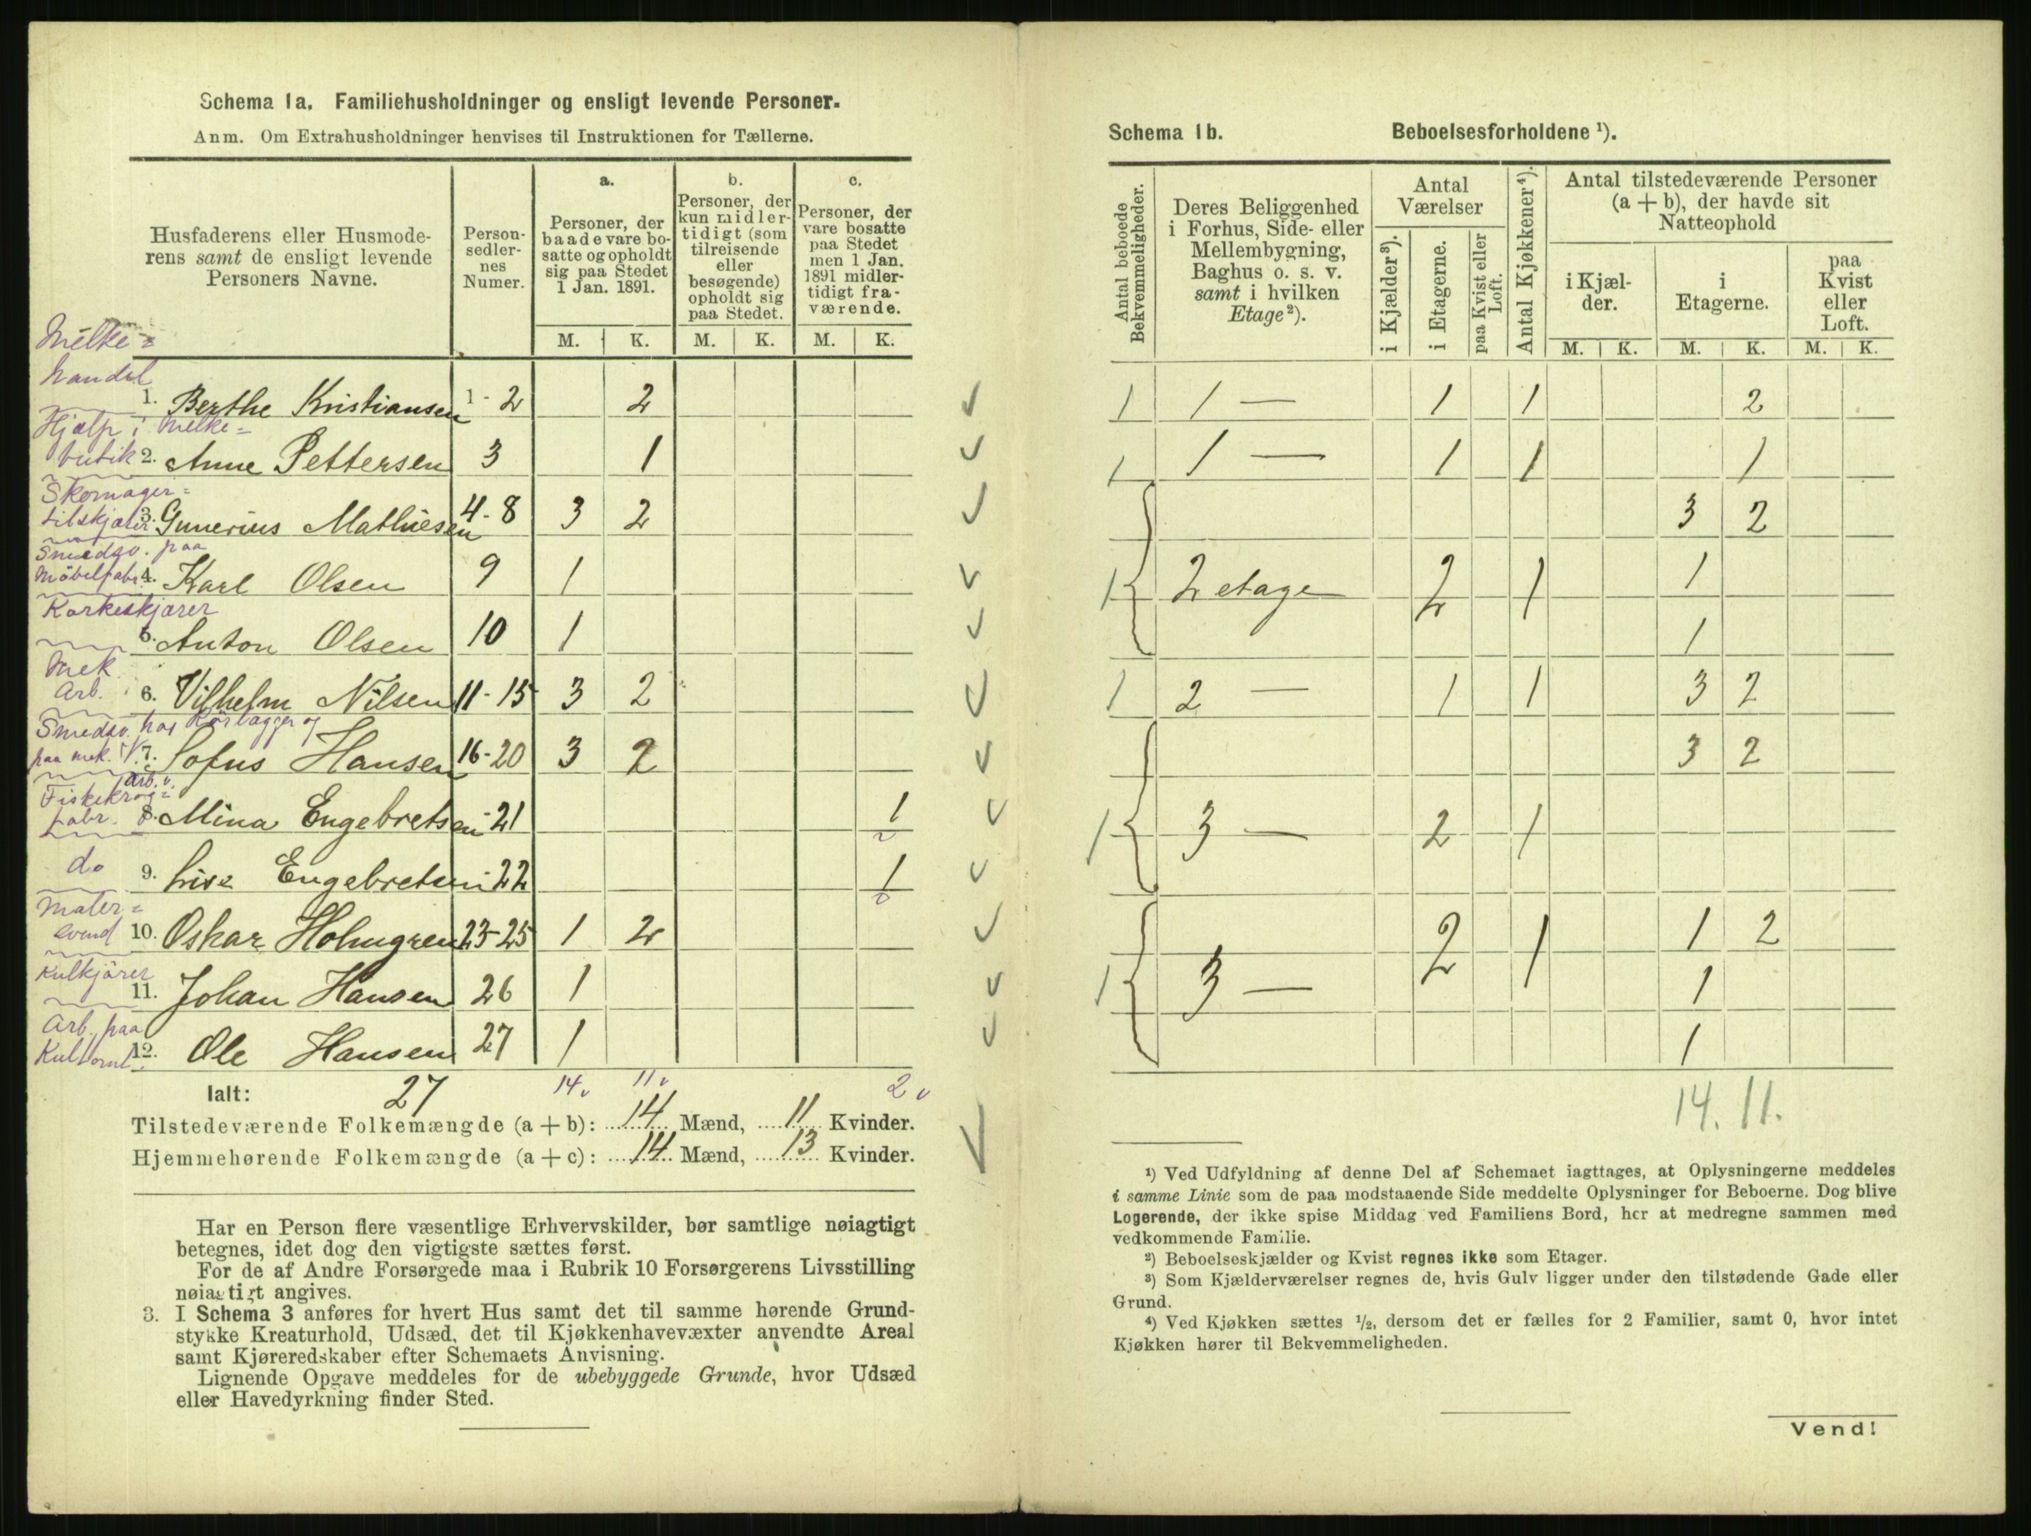 Schema 1a. Familiehusholdninger og ensligt levende Personer.
Anm. Om Extrahusholdninger henvises til Instruktionen for Tællerne.
Husfaderens eller Husmode-
rens samt de ensligt levende
Personers Navne.
Person-
sedler-
nes
Numer.
a.
Personer, der
baade vare bo-
satte og opholdt
sig paa Stedet
1 Jan. 1891.
b.
Personer, der
kun midler-
tidigt (som
tilreisende
eller
besøgende)
opholdt sig
paa Stedet.
c.
Personer, der
vare bosatte
paa Stedet
men 1 Jan.
1891 midler-
tidigt fra-
værende.
M. K. M. K. M. K.
Melke=
handel
1. Berthe Kristiansen 1-2 2
Hjælp i Melke=
butik 2. Anne Pettersen 3 1
Skomager=
tilskjærer 3. Gunerius Mathiesen 4-8 3 2
Smedsv. paa
Möbelfabr. 4. Karl Olsen 9 1
Korkeskjærer
5. Anton Olsen 10 1
Mek.
Arb. 6. Vilhelm Nilsen 11-15 3 2
Smedsv. hos Körlagger og
paa mek. V. 7. Sofus Hansen 16-20 3 2
Arb. v.
Fiskekrog=
fabr. 8. Mina Engebretsen 21 1
do 9. Lise Engebretsen 22 1
Maler=
svend 10. Oskar Holmgren 23-25 1 2
Kulkjörer
11. Johan Hansen 26 1
Arb. paa
Kultomt 12. Ole Hansen 27 1
Ialt: 27 14 11 2
Tilstedeværende Folkemængde (a + b): 14 Mænd, 11 Kvinder.
Hjemmehørende Folkemængde (a + c): 14 Mænd, 13 Kvinder.
Har en Person flere væsentlige Erhvervskilder, bør samtlige nøiagtigt
betegnes, idet dog den vigtigste sættes først.
For de af Andre Forsørgede maa i Rubrik 10 Forsørgerens Livsstilling
nøiagtigt angives.
3. I Schema 3 anføres for hvert Hus samt det til samme hørende Grund-
stykke Kreaturhold, Udsæd, det til Kjøkkenhavevæxter anvendte Areal
samt Kjøreredskaber efter Schemaets Anvisning.
Lignende Opgave meddeles for de ubebyggede Grunde, hvor Udsæd
eller Havedyrkning finder Sted.
Schema 1b. Beboelsesforholdene ¹).
Antal beboede
Bekvemmeligheder.
Deres Beliggenhed
i Forhus, Side- eller
Mellembygning,
Baghus o. s. v.
samt i hvilken
Etage²).
Antal
Værelser
i Kjælder³).
i Etagerne.
paa Kvist eller
Loft.
Antal Kjøkkener⁴).
Antal tilstedeværende Personer
(a + b), der havde sit
Natteophold
i Kjæl-
der.
i
Etagerne.
paa
Kvist
eller
Loft.
M. K. M. K. M. K.
1 1 — 1 1 2
1 1 — 1 1 1
3 2
1 2 etage 2 1 1
1
1 2 — 1 1 3 2
3 2
1 3 — 2 1
2 1 1 2
1 3 — 1
1
14. 11.
¹) Ved Udfyldning af denne Del af Schemaet iagttages, at Oplysningerne meddeles
i samme Linie som de paa modstaaende Side meddelte Oplysninger for Beboerne. Dog blive
Logerende, der ikke spise Middag ved Familiens Bord, her at medregne sammen med
vedkommende Familie.
²) Beboelseskjælder og Kvist regnes ikke som Etager.
³) Som Kjælderværelser regnes de, hvis Gulv ligger under den tilstødende Gade eller
Grund.
⁴) Ved Kjøkken sættes ½, dersom det er fælles for 2 Familier, samt 0, hvor intet
Kjøkken hører til Bekvemmeligheden.
Vend!